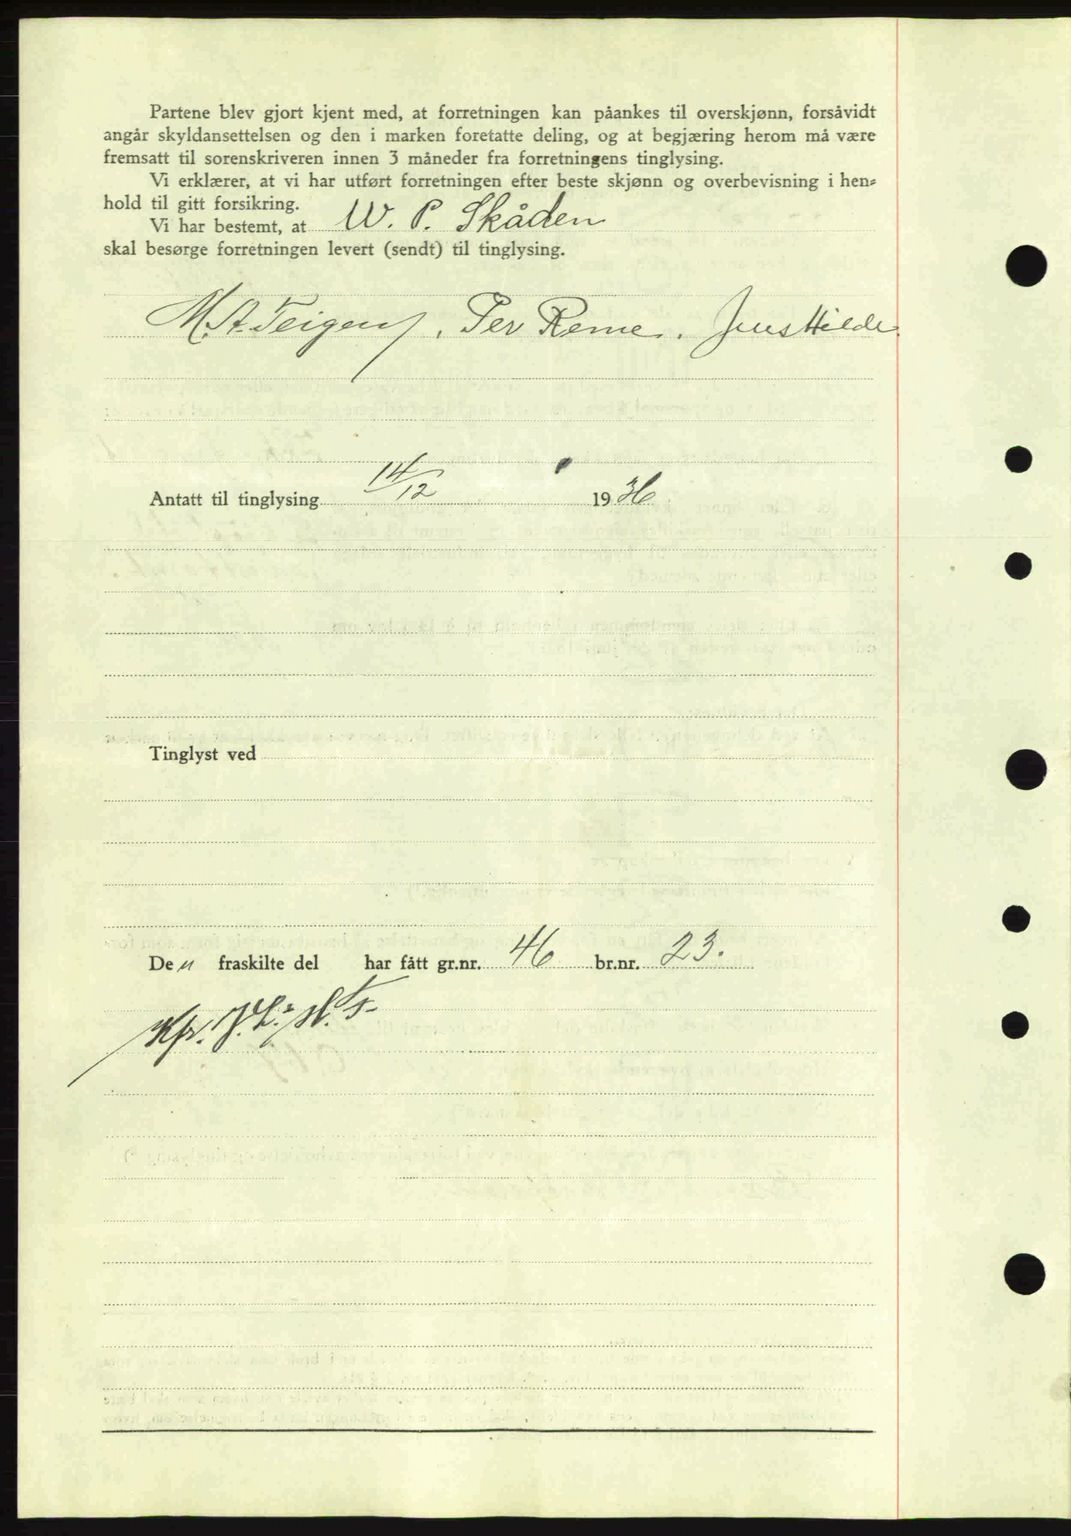 Partene blev gjort kjent med, at forretningen kan påankes til overskjønn, forsåvidt
angår skyldansettelsen og den i marken foretatte deling, og at begjæring herom må være
fremsatt til sorenskriveren innen 3 måneder fra forretningens tinglysing.
Vi erklærer, at vi har utført forretningen efter beste skjønn og overbevisning i hen-
hold til gitt forsikring.
Vi har bestemt, at W. P. Skåden
skal besørge forretningen levert (sendt) til tinglysing.
M. A. Teigen, Per Reme. Jens Hilde.
Antatt til tinglysing 14/12 1936
Tinglyst ved
Den fraskilte del har fått gr.nr. 46 br.nr. 23.